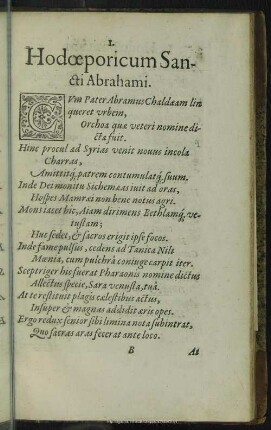 I.
Hodœporicum San-
cti Abrahami.
CVm Pater Abramus Chaldæam lin
queret vrbem,
Orchoa quæ veteri nomine di-
cta fuit.
Hinc procul ad Syrias venit nouus incola
Charras,
Amittitq́, patrem contumulatq́, suum.
Inde Dei monitu Sichemæas iuit ad oras,
Hospes Mamræi non bene notus agri.
Mons iacet hic, Aiam dirimens Bethlamq́, ve-
tustam;
Huc sedet, & sacros erigit ipse focos.
Inde fame pulsus, cedens ad Tanica Nili
Mœnia, cum pulchra coniuge carpit iter.
Sceptriger hic fuerat Pharaonis nomine dictus
Allectus specie, Sara venusta, tua.
At te restituit plagis cælestibus actus,
Insuper & magnas addidit æris opes.
Ergo redux senior sibi limina nota subintrat,
Quo sacras aras fecerat ante loco.
B At